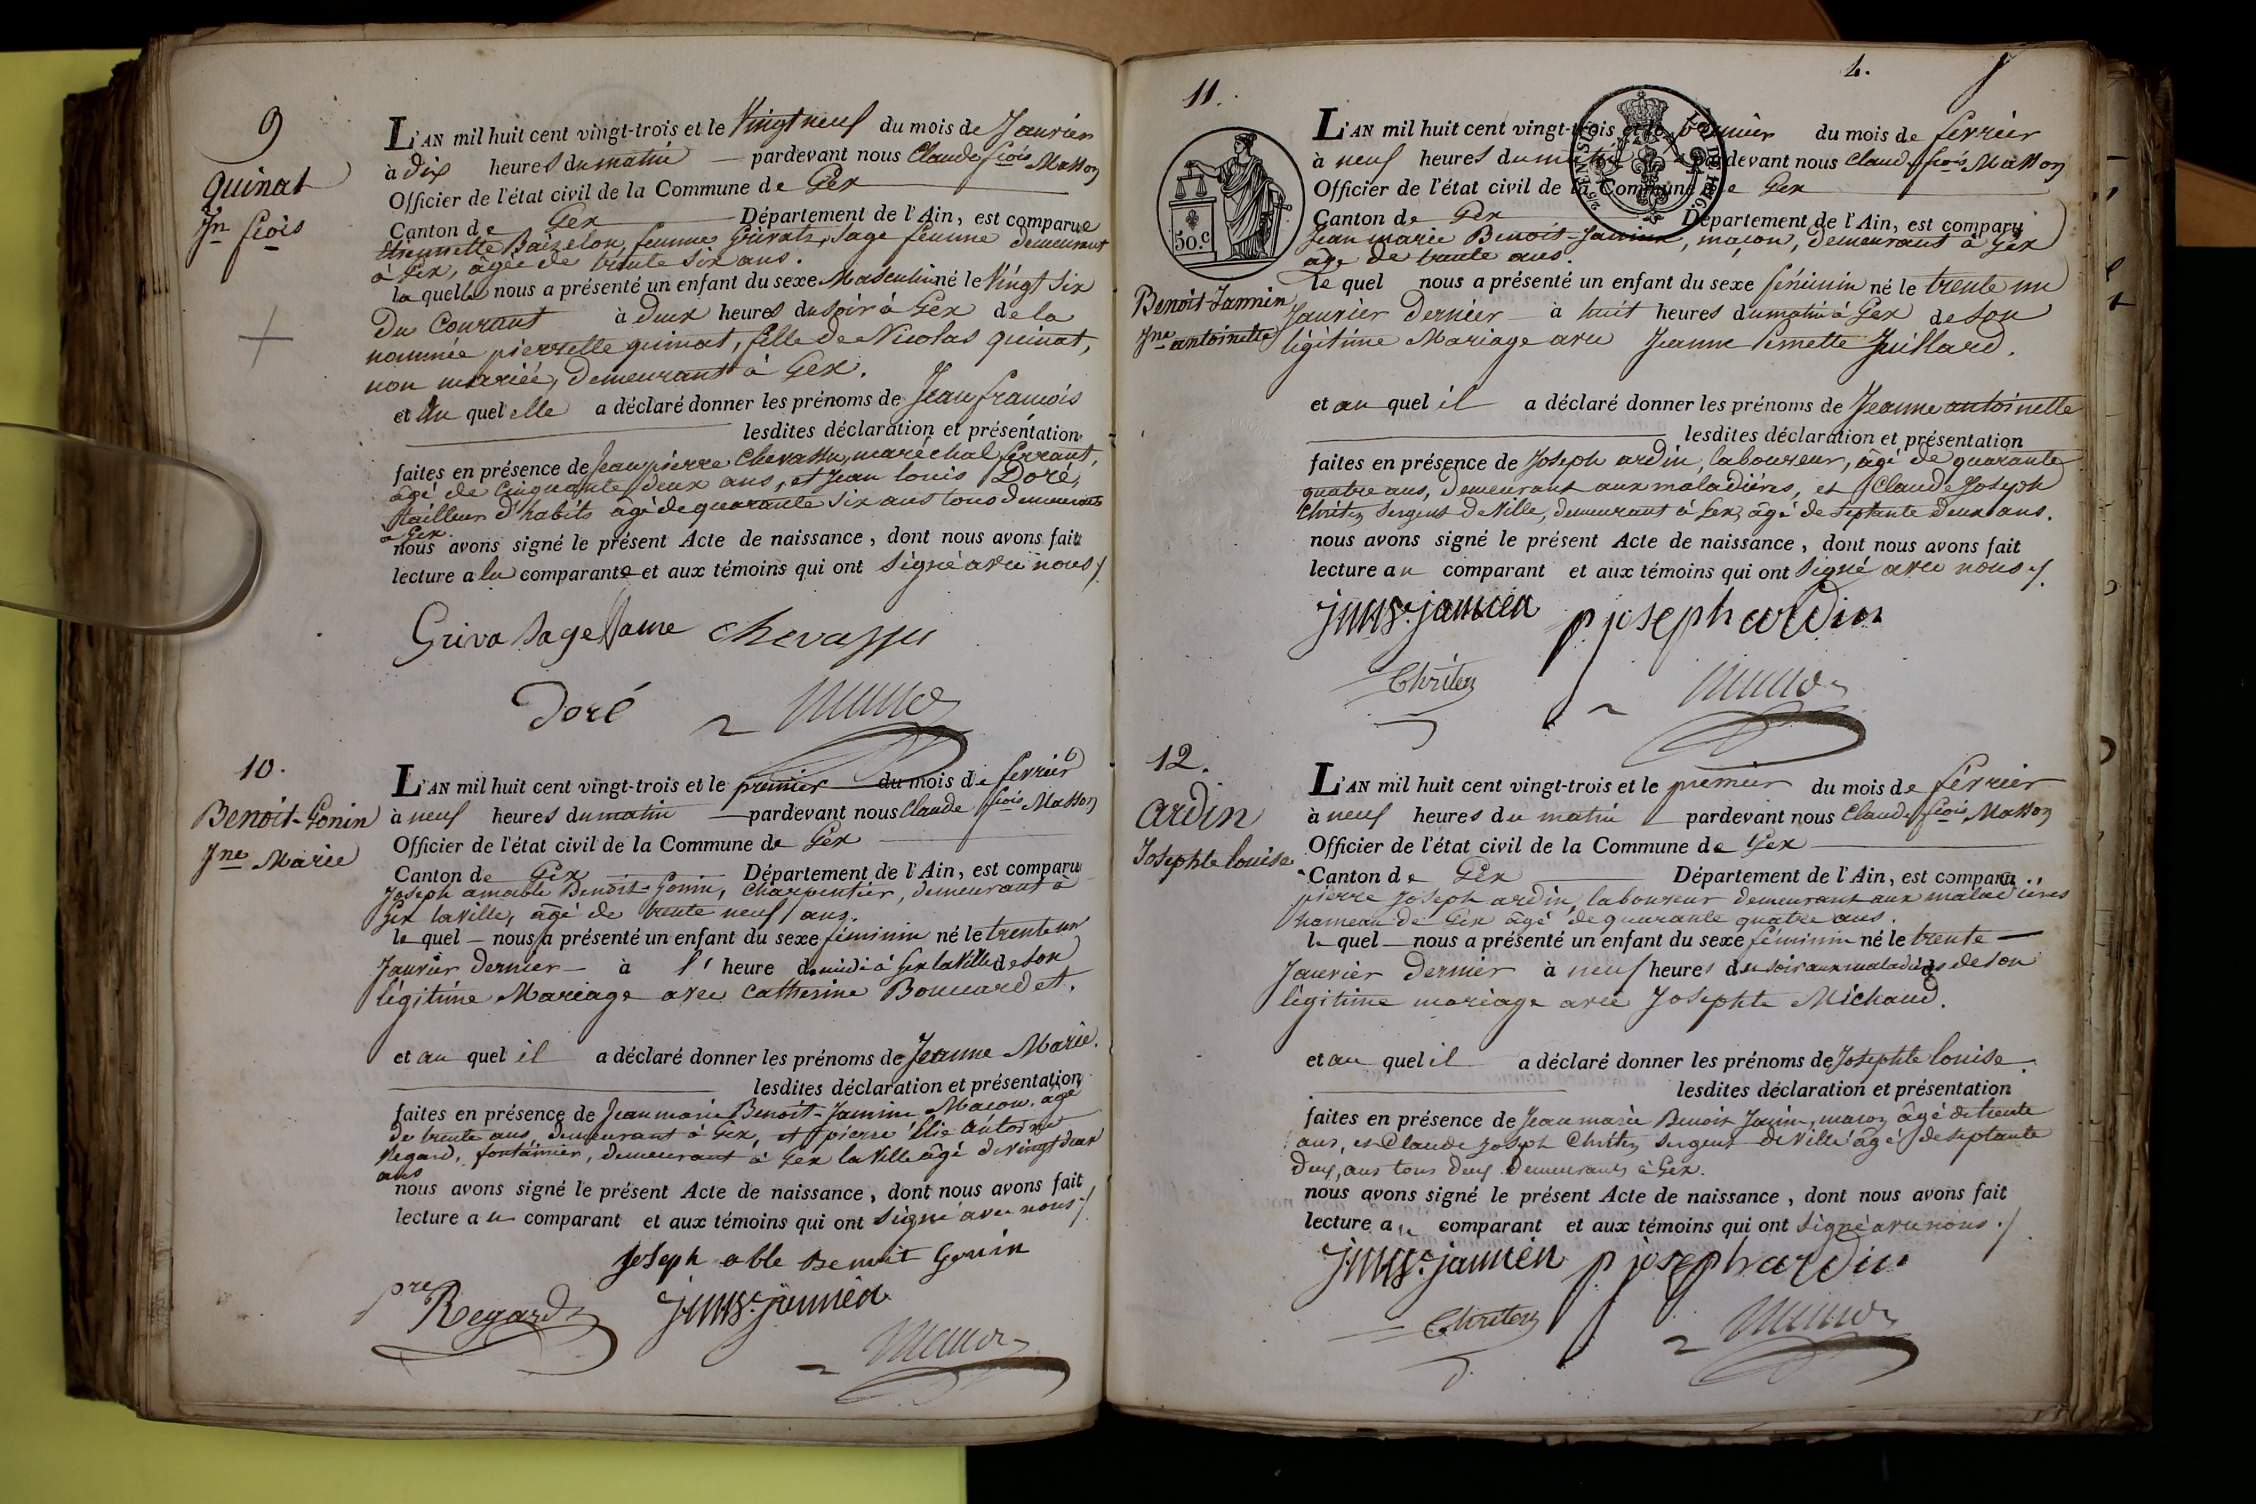 9
quinat
Jn fçois
L'AN mil huit cent vingt-trois et le Vingt neuf du mois de Janvier
à dix heures du matin pardevant nous Claude fçois Masson
Officier de l'état civil de la Commune de Gex
Canton de Gex Département de l'Ain, est comparue
femme Sage femme demeurant
à Gex, âgée de trente six ans.
la quelle nous a présenté un enfant du sexe Masculin né le Vingt six
du Courant à deux heures du soir à Gex de la
nommée pierrette quinat, fille de Nicolas quinat,
non mariée, demeurant à Gex.
et au quel elle a déclaré donner les prénoms de Jean françois
lesdites déclaration et présentation
faites en présence de Jean pierre Chevassu, maréchal ferrant,
âgé de Cinquante deux ans, et Jean louis Doré,
tailleur d'habits âgé de quarante six ans tous demeurants
à Gex.
nous avons signé le présent Acte de naissance, dont nous avons fait
lecture a la comparante et aux témoins qui ont signé avec nous ./.
Griva Sage fame Chevassu
Doré
10.
Benoit-Gonin
Jne Marie
L'AN mil huit cent vingt-trois et le premier du mois de fevrier
à neuf heures du matin pardevant nous Claude fçois Masson
Officier de l'état civil de la Commune de Gex
Canton de Gex Département de l'Ain, est comparu
Joseph amable Benoit-Gonin, Charpentier, demeurant à
Gex laville, âgé de trente neuf ans.
le quel nous a présenté un enfant du sexe féminin né le trente un
Janvier dernier à l' heure de midi à Gex la Ville de son
légitime Mariage avec Catherine Bouuardet.
et au quel il a déclaré donner les prénoms de Jeanne Marie.
lesdites déclaration et présentation
faites en présence de Jean marie Benoit-Jannin Macon, agé
de trente ans, demeurant à Gex, et pierre élie Antoine
Regard, fontainier, demeurant à Gex la Ville âgé de Vingt deux
ans
nous avons signé le présent Acte de naissance, dont nous avons fait
lecture a u comparant et aux témoins qui ont signé avec nous ./.
joseph able Benoit Gonin
pre Regard
11.
4.
50.C
Benoit-Jannin
Jne antoinette
L'AN mil huit cent vingt-trois et le premier du mois de fevrier
à neuf heures du matin pardevant nous Claude fçois Masson
Officier de l'état civil de la Commune de Gex
Canton de Gex Département de l'Ain, est comparu
Jean marie Benoit-Jannin, maçon, demeurant à Gex
âgé de trente ans.
le quel nous a présenté un enfant du sexe féminin né le trente un
Janvier dernier à huit heures du matin à Gex de son
légitime Mariage avec Jeanne Juillard.
et au quel il a déclaré donner les prénoms de Jeanne antoinette
lesdites déclaration et présentation
faites en présence de Joseph ardin, laboureur, âgé de quarante
quatre ans, demeurant aux maladières, et Claude Joseph
Chriten Sergent de Ville, demeurant à Gex, âgé de septante deux ans.
nous avons signé le présent Acte de naissance, dont nous avons fait
lecture a u comparant et aux témoins qui ont signé avec nous ./.
p joseph ardin
Chriten
12.
ardin
Josephte louise
L'AN mil huit cent vingt-trois et le premier du mois de février
à neuf heures du matin pardevant nous Claude fçois Masson
Officier de l'état civil de la Commune de Gex
Canton de Gex Département de l'Ain, est comparu
pierre Joseph ardin, laboureur demeurant aux maladières
hameau de Gex âgé de quarante quatre ans.
le quel nous a présenté un enfant du sexe féminin né le trente
Janvier dernier à neuf heures du soir aux maladières de son
légitime mariage avec Josephte Michaud.
et au quel il a déclaré donner les prénoms de Josephte louise.
lesdites déclaration et présentation
faites en présence de Jean marie Benoit Janin, macon âgé de trente
ans, et Claude Joseph Chriten Sergent de Ville âgé de septante
deux ans tous deux demeurants à Gex.
nous avons signé le présent Acte de naissance, dont nous avons fait
lecture a u comparant et aux témoins qui ont signé avec nous ./.
p joseph ardin
Chriten